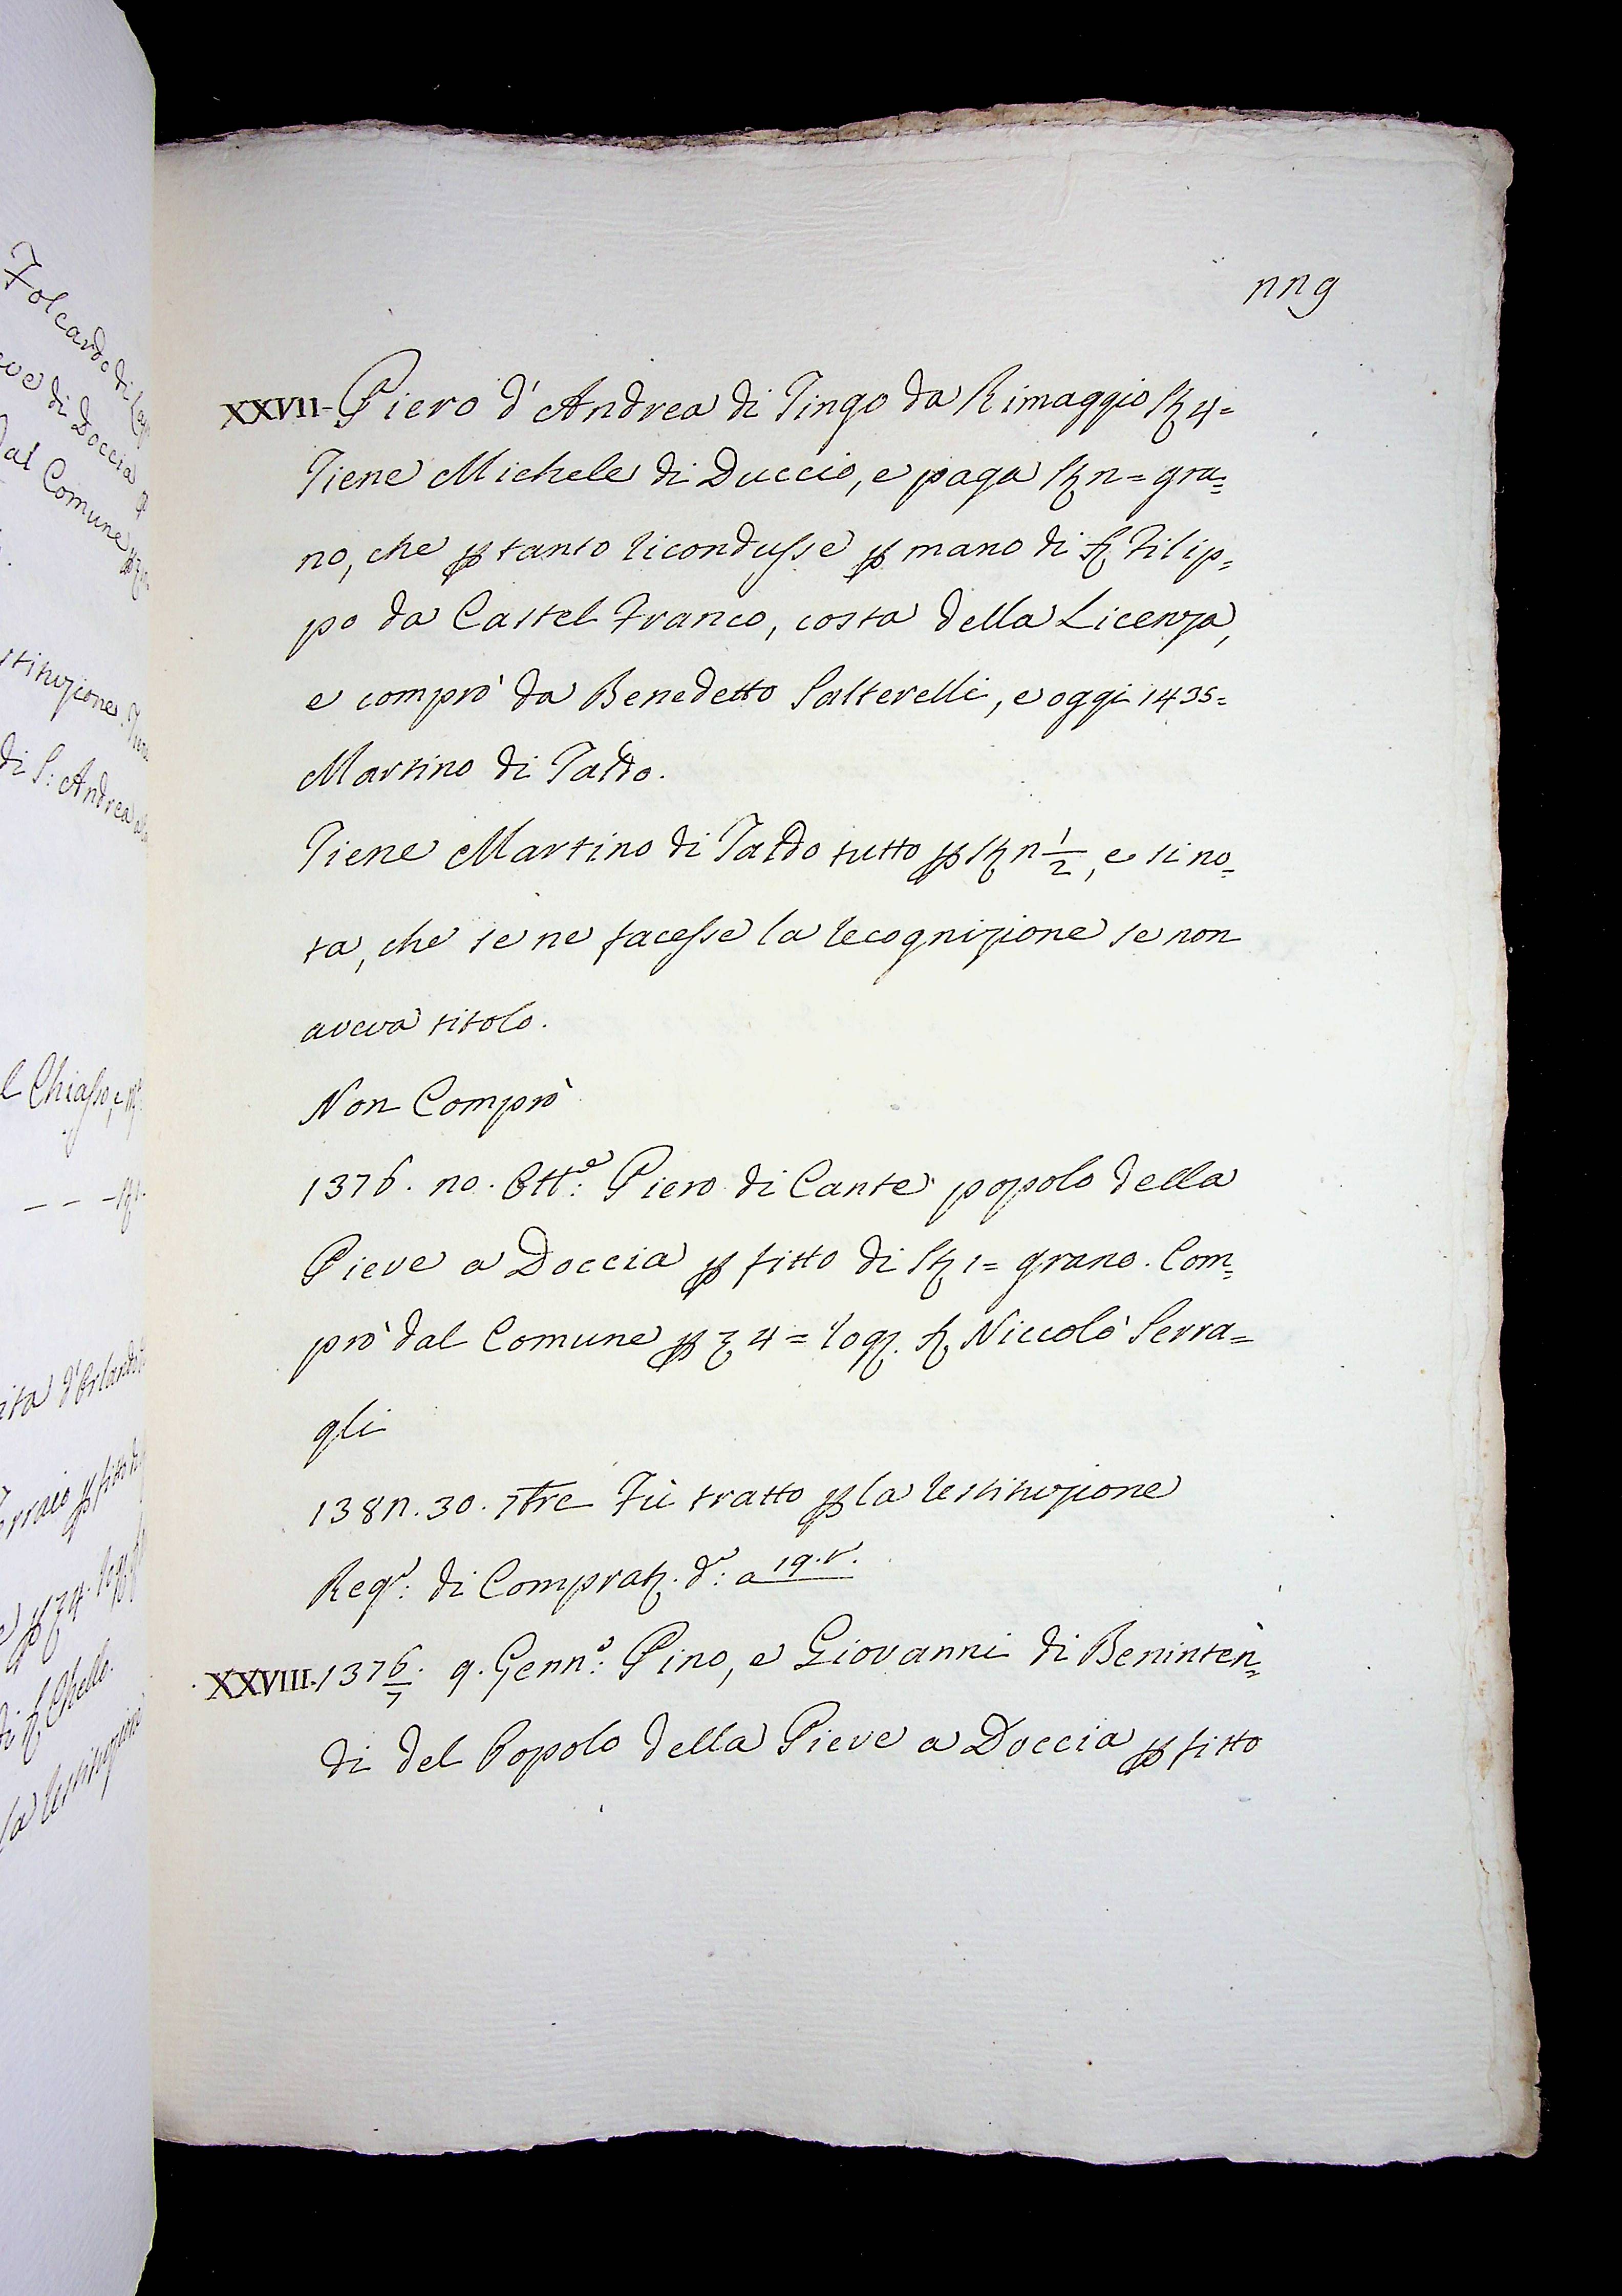 nn9
XXVII - Piero d'Andrea di Tingo da Rimaggio St 4 =
Tiene Michele di Duccio, e paga St n = gra=
no, che p tanto ricondusse p mano di S Filip=
po da Castel Franco, costa della Licenza,
e comprò da Benedetto Salterelli, e oggi 1435 =
Martino di Taddo.
Tiene Martino di Taddo tutto p St n 1/2, e si no=
ta, che se ne facesse la recognizione se non
aveva titolo.
Non Comprò
1376. no. Ott:e Piero di Cante popolo della
Pieve a Doccia p fitto di St 1 = grano. Com=
prò dal Comune p 4 = rog. S Niccolò Serra=
gli
138n. 30. 7bre Fù tratto p la restituzione
Reg:o di Comprat. d:o a 19.r.
XXVIII. 1376/7. 9. Genn:o Pino, e Giovanni di Beninten=
di del Popolo della Pieve a Doccia p fitto
Folcardo di
di Doccia
al Comune
stituzione. Tiene
di S: Andrea
l Chiasso, e
ita d'Orlando
p fitto
di S Chello.
la restituzione